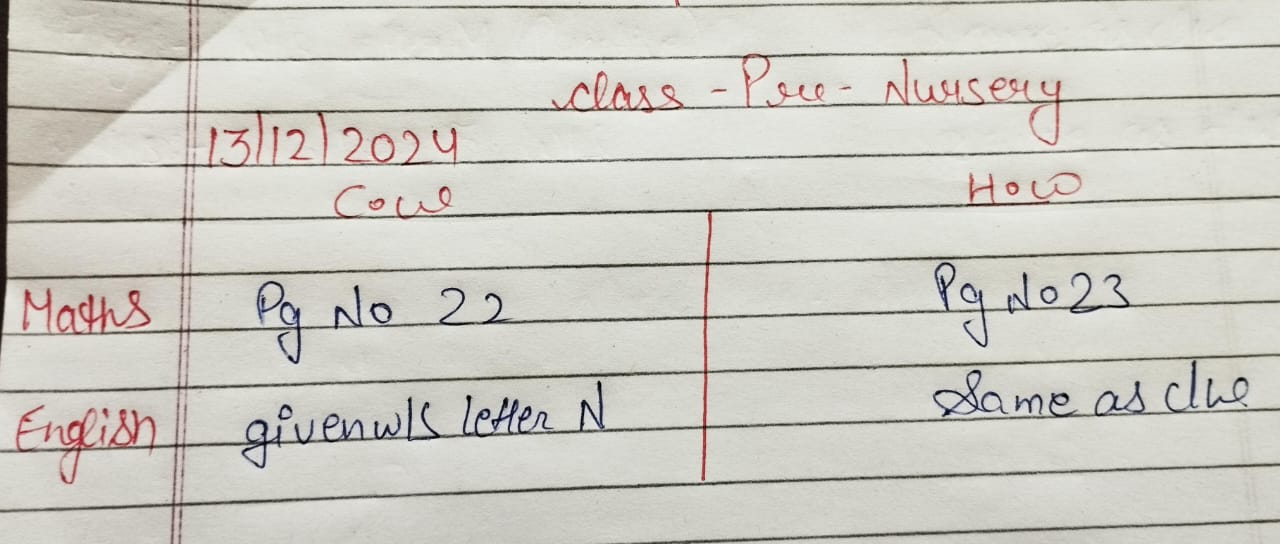 class - Pre - Nursery
13/12/2024
C.W H.W
Maths Pg No 22 Pg No 23
English given w/s letter N Same as c/w